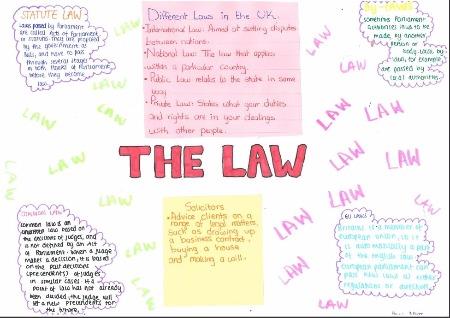 STATUTE LAW
Laws passed by Parliament
are called Acts of Parliament
or Statutes. They are proposed
by the government as
bills, and have to pass
through several stages
in both Houses of Parliament
before they become
law.
Different Laws in the UK.
International Law: Aimed at settling disputes
between nations.
National Law: The law that applies
within a particular country.
Public Law: relates to the state in some
way
Private Law: States what your duties
and rights are in your dealings
with other people.
BY-LAWS
sometimes Parliament
authorises laws to be
made by another
person or
body. Local by
laws, for example
are passed by
local authorities
LAW
LAW
LAW
LAW
LAW
LAW
LAW
LAW
LAW
LAW
THE LAW
COMMON LAW
common law is an
law based on
the decisions of judges, and
is not defined by an Act of
Parliament. When a judge
makes a decision, it is based
on the past decisions
(precedents) of judges
in similar cases. If a
point of law has not already
been decided, the judge will
set a new precedents for
the future.
Solicitors
• Advice clients on a
range of legal matters,
such as drawing up
a business contract,
buying a house
and making a will.
LAW
LAW
LAW
LAW
LAW
LAW
LAW
LAW
EU LAWS
Britain is a member of
european union, so it
is automatically a part
of the english law
european parliament can
pass new laws as either
regulations or